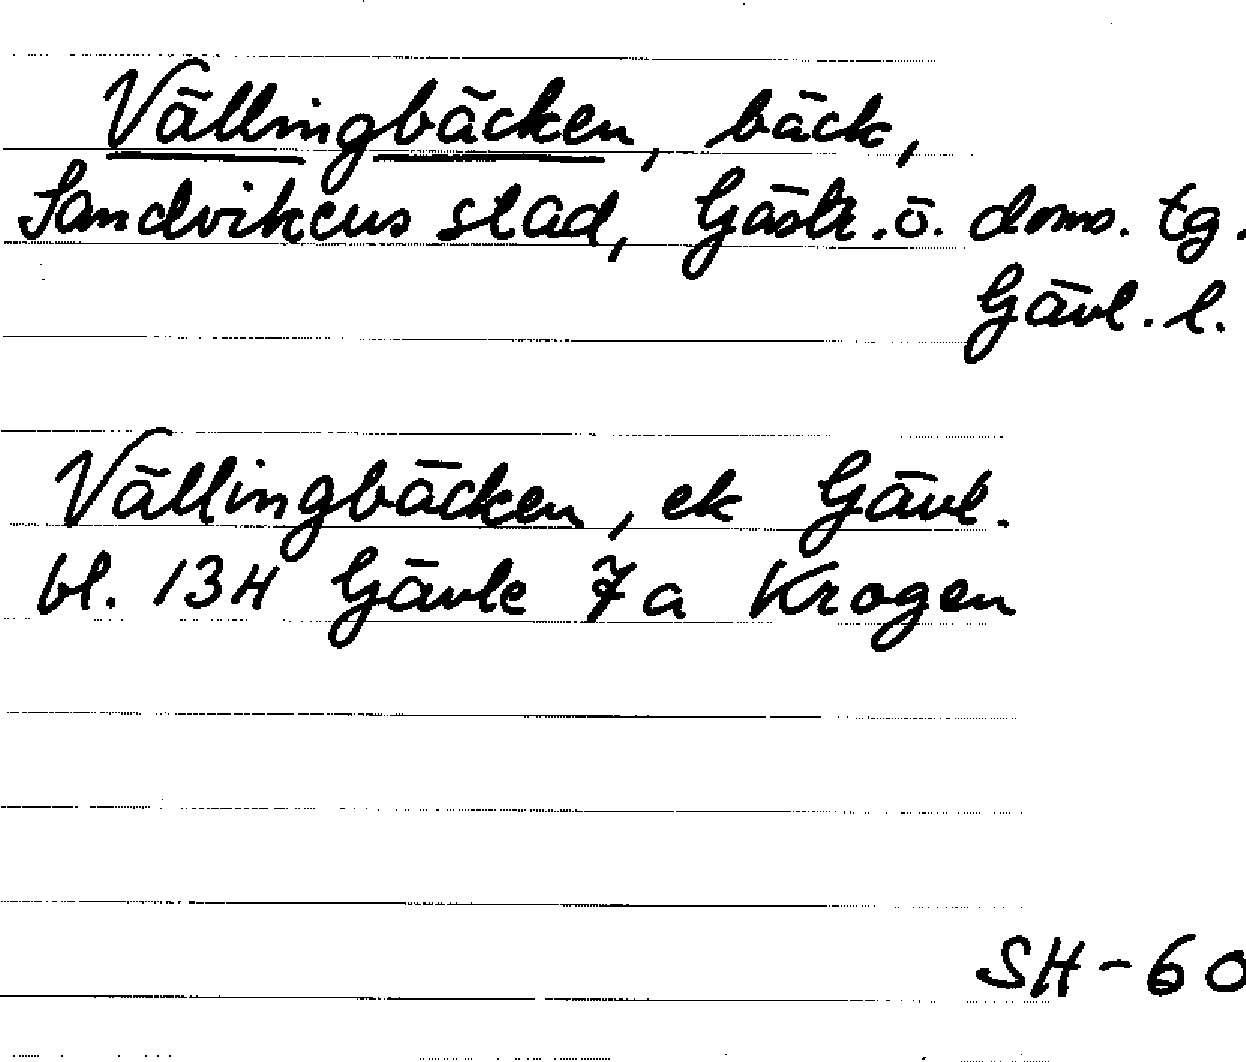 Vällingbäcken, bäck,
Sandvikens stad, Gästr. ö. doms. tg.
Gävl. l.
Vällingbäcken, ek Gävl.
bl. 13H Gävle 7a Krogen
SH-60